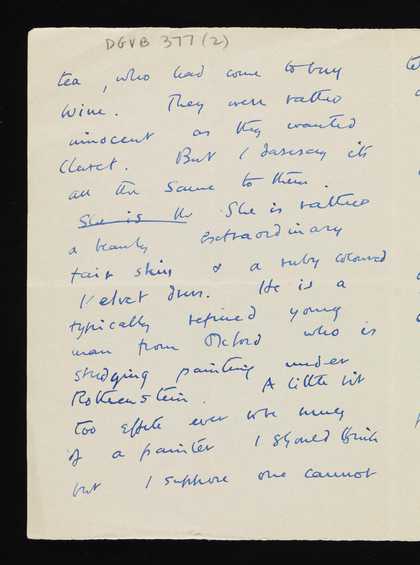 DGVB 377 (2)
tea, who had come to buy
wine. They were rather
innocent as they wanted
Claret. But I daresay its
all the same to them.
She is th She is rather
a beauty extraordinary
fair skin & a ruby coloured
Velvet dress. He is a
typically refined young
man from Oxford who is
studying painting under
Rothenstein. A little bit
too effete ever to be
of a painter I should think
but I suppose one cannot